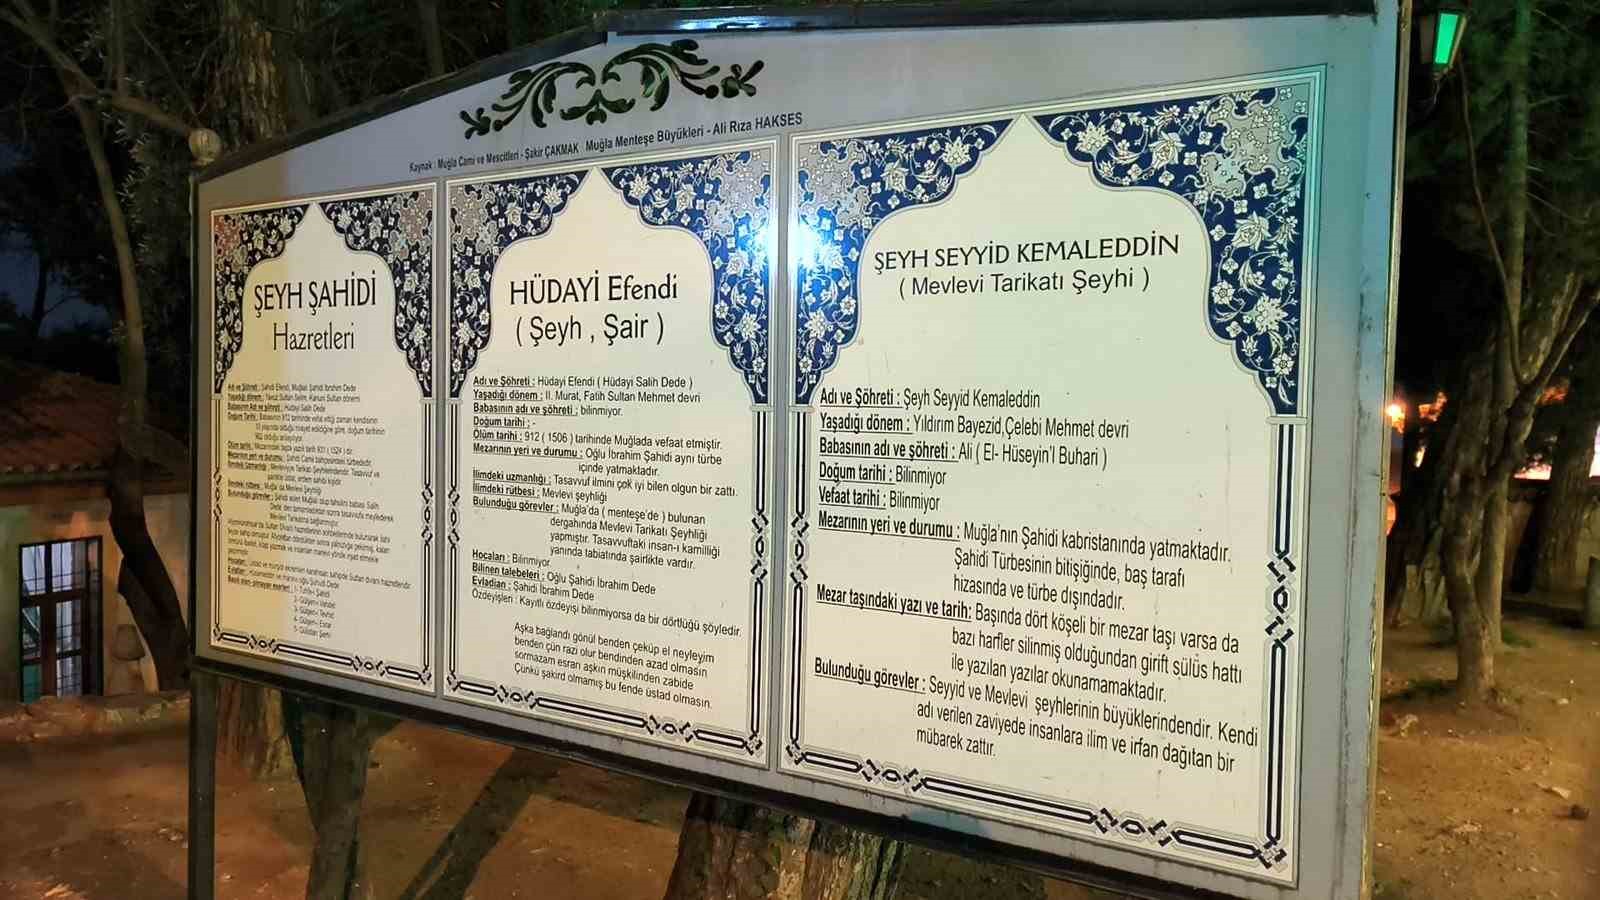 Kaynak : Muğla Cami ve Mescitleri - Şakir ÇAKMAK Muğla Menteşe Büyükleri - Ali Rıza HAKSES
ŞEYH ŞAHİDİ
Hazretleri
Adı ve Şöhreti : Şahidi Efendi, Muğlalı Şahidi İbrahim Dede
Yaşadığı dönem : Yavuz Sultan Selim, Kanuni Sultan dönemi
Babasının Adı ve şöhreti : Hüdayi Salih Dede
Doğum Tarihi : Babasının 912 tarihinde vefat ettiği zaman kendisinin
10 yaşında olduğu rivayet edildiğine göre, doğum tarihinin
902 olduğu anlaşılıyor.
Ölüm tarihi : Mezarındaki taşta yazılı tarih 931 (1524) dir.
Mezarının yeri ve durumu : Şahidi Camii bahçesindeki türbededir.
Mevleviyye Tarikatı Şeyhlerindendir. Tasavvuf ve
Muğla' da Mevlevi Şeyhliği
Bulunduğu görevler : Şahidi aslen Muğlalı olup tahsilini babası Salih
Dede' den tamamladıktan sonra tasavvufa meylederek
Mevlevi Tarikatına bağlanmıştır.
1- Tuhfe-i Şahidi
2- Gülşen-i Vahdet
3- Gülşen-i Tevhid
4- Gülşen-i Esrar
HÜDAYİ Efendi
( Şeyh , Şair )
Adı ve Şöhreti : Hüdayi Efendi ( Hüdayi Salih Dede )
Yaşadığı dönem : II. Murat, Fatih Sultan Mehmet devri
Babasının adı ve şöhreti : bilinmiyor.
Doğum tarihi : -
Ölüm tarihi : 912 ( 1506 ) tarihinde Muğlada vefaat etmiştir.
Mezarının yeri ve durumu : Oğlu İbrahim Şahidi aynı türbe
içinde yatmaktadır.
İlimdeki uzmanlığı : Tasavvuf ilmini çok iyi bilen olgun bir zattı.
İlimdeki rütbesi : Mevlevi şeyhliği
Bulunduğu görevler : Muğla'da ( menteşe'de ) bulunan
dergahında Mevlevi Tarikatı Şeyhliği
yapmıştır. Tasavvuftaki insan-ı kamilliği
yanında tabiatında şairlikte vardır.
Hocaları : Bilinmiyor
Bilinen talebeleri : Oğlu Şahidi İbrahim Dede
Evladları : Şahidi İbrahim Dede
Özdeyişleri : Kayıtlı özdeyişi bilinmiyorsa da bir dörtlüğü şöyledir.
Aşka bağlandı gönül benden çeküp el neyleyim
benden çün razı olur bendinden azad olmasın
sormazam esrarı aşkın müşkilinden zabide
Çünkü şakird olmamış bu fende üstad olmasın.
ŞEYH SEYYİD KEMALEDDİN
( Mevlevi Tarikatı Şeyhi )
Adı ve Şöhreti : Şeyh Seyyid Kemaleddin
Yaşadığı dönem : Yıldırım Bayezid,Çelebi Mehmet devri
Babasının adı ve şöhreti : Ali ( El- Hüseyin'l Buhari )
Doğum tarihi : Bilinmiyor
Vefaat tarihi : Bilinmiyor
Mezarının yeri ve durumu : Muğla'nın Şahidi kabristanında yatmaktadır.
Şahidi Türbesinin bitişiğinde, baş tarafı
hizasında ve türbe dışındadır.
Mezar taşındaki yazı ve tarih: Başında dört köşeli bir mezar taşı varsa da
bazı harfler silinmiş olduğundan girift sülüs hattı
ile yazılan yazılar okunamamaktadır.
Bulunduğu görevler : Seyyid ve Mevlevi şeyhlerinin büyüklerindendir. Kendi
adı verilen zaviyede insanlara ilim ve irfan dağıtan bir
mübarek zattır.